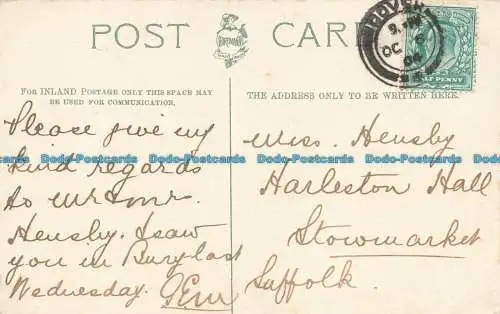 POST CARD
FOR INLAND POSTAGE ONLY THIS SPACE MAY
BE USED FOR COMMUNICATION.
THE ADDRESS ONLY TO BE WRITTEN HERE.
Please give my
kind regards
to Mr & Mrs.
Hensby. I saw
you in Bury last
Wednesday.
Miss. Hensby
Harleston Hall
Stowmarket
Suffolk.
DOVER
OC 6
HALF PENNY
Dodo-Postcards Dodo-Postcards Dodo-Postcards Dodo-Postcards